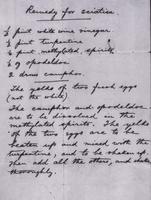 Remedy for sciatica
½ pint white wine vinegar
½ pint turpentine
½ pint methylated spirits
½ g opodeldoc
2 drams camphor.
The yelks of two fresh eggs
(not the white)
The camphor and opodeldoc
are to be dissolved in the
methylated spirits. The yelks
of the two eggs are to be
beaten up and mixed with the
turpentine, and to be shaken up.
Then add all the others, and shake
thoroughly.